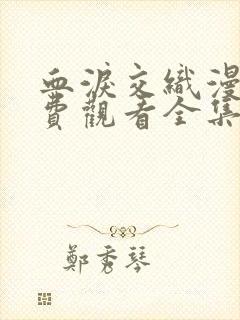 血淚交織漫
費觀看全集
鄭秀琴